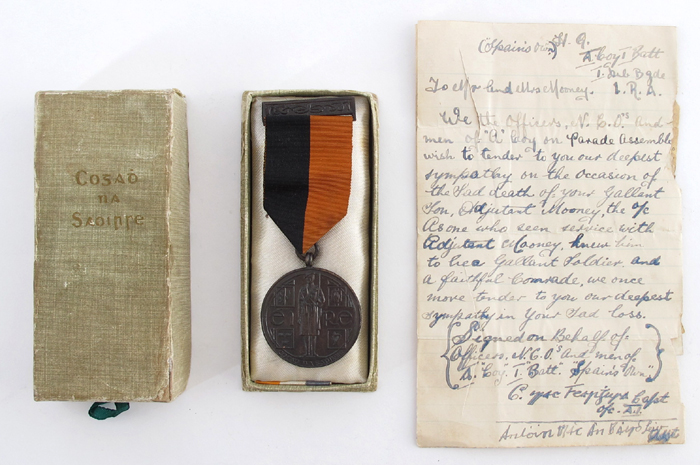 Cosaḋ
na
Saoirse
(Spain's Own) H. Q.
"A" Coy I Batt
I. Dub Bgde
To Mr and Mrs Mooney. I. R. A.
We the Officers, N. C. O's and
men of "A" Coy on Parade Assemble
wish to tender to you our deepest
sympathy on the occasion of
the Sad death of your Gallant
Son, Adjutant Mooney, the o/c
As one who seen service with
Adjutant Mooney, knew him
to be a Gallant Soldier, and
a faithful Comrade, we once
more tender to you our deepest
sympathy in your Sad loss.
Signed on Behalf of.
Officers, N.C.O's and men of
"A" "Coy. I." Batt. "Spain's Own."
C. Mac Capt
o/c. A.I.